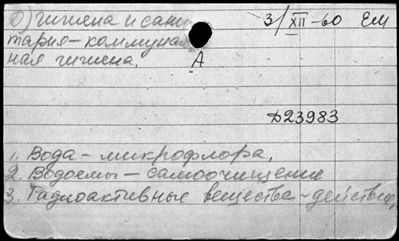 б) Гигиена и сани 3/XII-60 ЕМ
тария - коммуналь
ная гигиена. А
Д23983
1. Вода - микрофлора.
2. Водоемы - самоочищение
3. Радиоактивные вещества - действие,